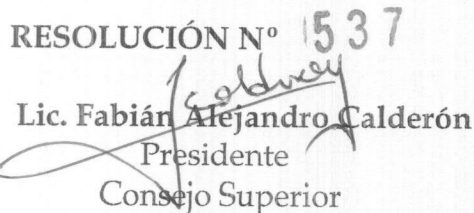 RESOLUCIÓN Nº 537
Lic. Fabián Alejandro Calderón
Presidente
Consejo Superior